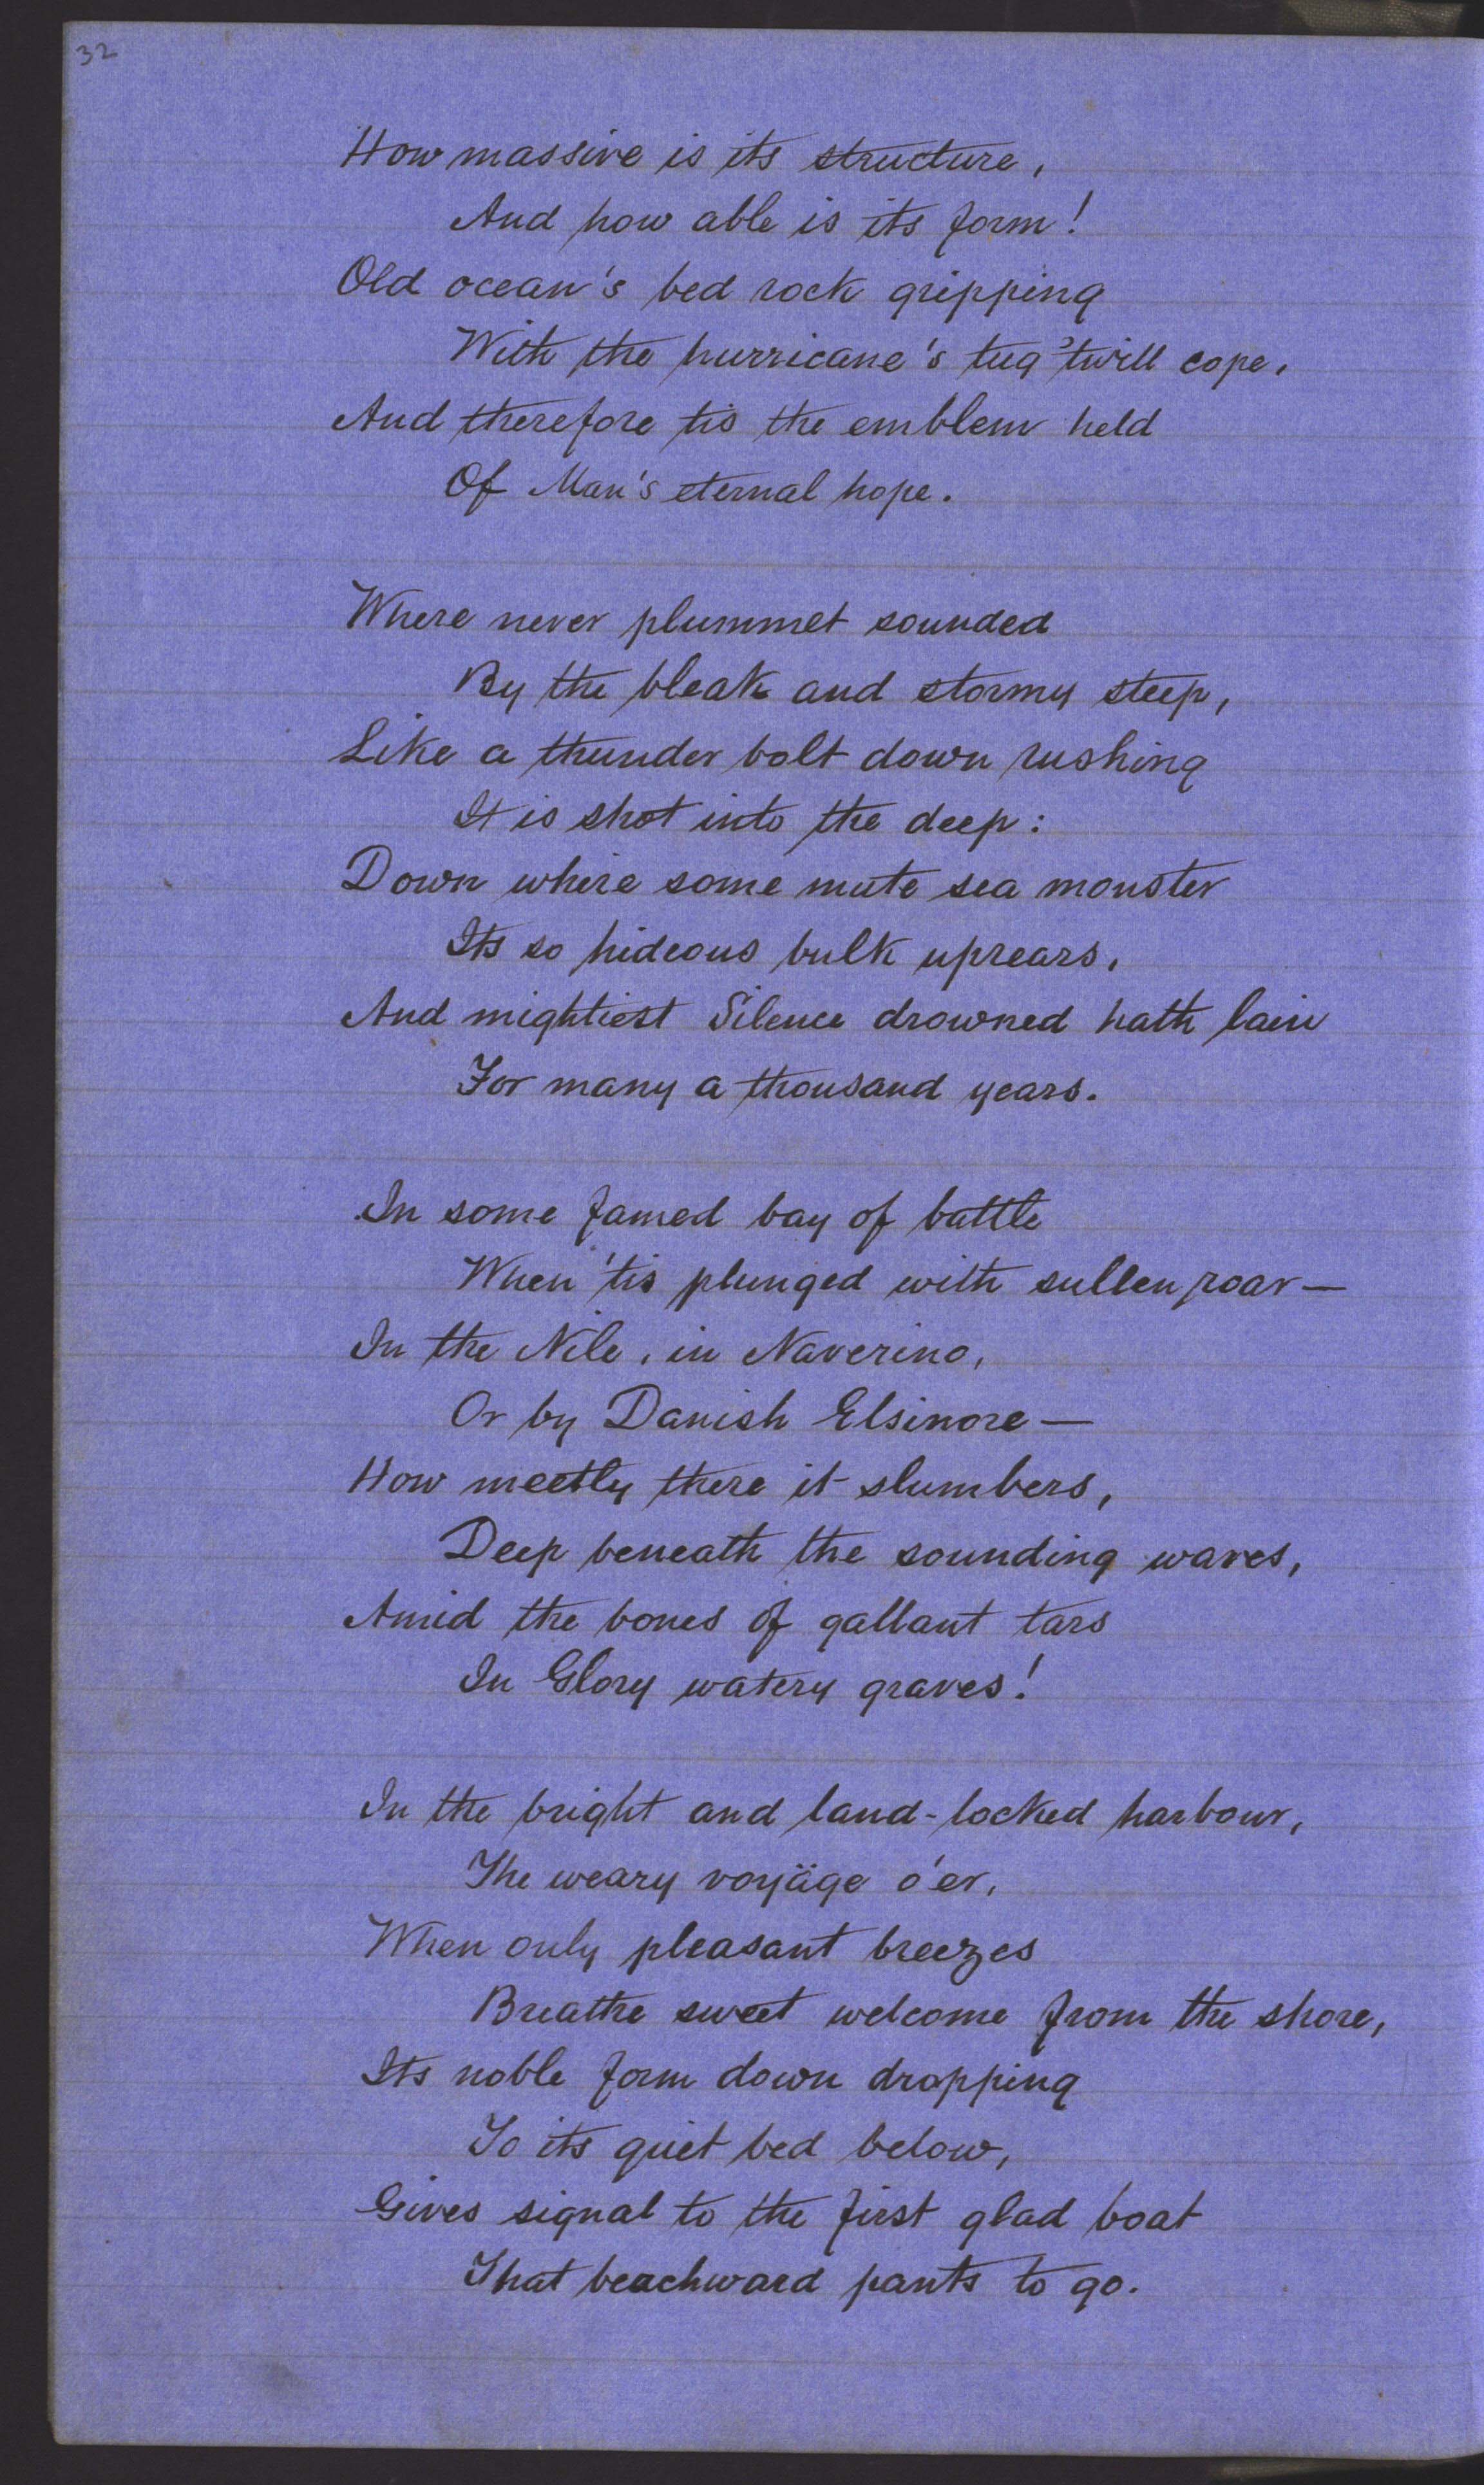 32
How massive is its structure,
And how able is its form!
Old ocean's bed rock gripping
With the hurricane's tug 'twill cope,
And therefore tis the emblem held
Of Man's eternal hope.
Where never plummet sounded
By the bleak and stormy steep,
Like a thunder bolt down rushing
It is shot into the deep:
Down where some mute sea monster
Its so hideous bulk uprears,
And mightiest Silence drowned hath lain
For many a thousand years.
In some famed bay of battle
When 'tis plunged with sullen roar—
In the Nile, in Naverino,
Or by Danish Elsinore—
How meetly there it slumbers,
Deep beneath the sounding waves,
Amid the bones of gallant tars
In Glory watery graves!
In the bright and land-locked harbour,
The weary voyäge o'er,
When only pleasant breezes
Breathe sweet welcome from the shore,
Its noble form down dropping
To its quiet bed below,
Gives signal to the first glad boat
That beachward pants to go.